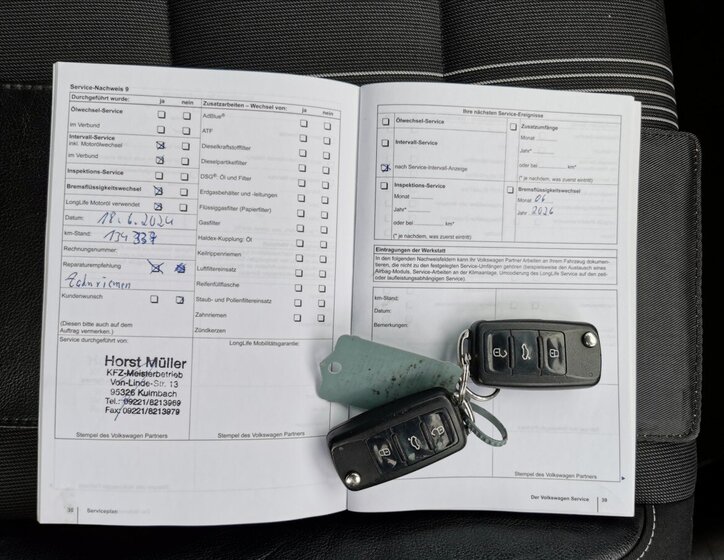 Service-Nachweis 9
Durchgeführt wurde: ja nein
Ölwechsel-Service
im Verbund
Intervall-Service
inkl. Motorölwechsel
im Verbund
Inspektions-Service
Bremsflüssigkeitswechsel
LongLife Motoröl verwendet
Datum: 18.6.2024
km-Stand: 134 337
Rechnungsnummer:
Reparaturempfehlung
Zahnriemen
Kundenwunsch
(Diesen bitte auch auf dem
Auftrag vermerken.)
Service durchgeführt von:
Horst Müller
KFZ-Meisterbetrieb
Von-Linde-Str. 13
95326 Kulmbach
Tel.: 09221/8213969
Fax: 09221/8213979
Stempel des Volkswagen Partners
38 Serviceplan
Zusatzarbeiten – Wechsel von: ja nein
AdBlue®
ATF
Dieselkraftstofffilter
Dieselpartikelfilter
DSG®: Öl und Filter
Erdgasbehälter und -leitungen
Flüssiggasfilter (Papierfilter)
Gasfilter
Haldex-Kupplung: Öl
Keilrippenriemen
Luftfiltereinsatz
Reifenfüllflasche
Staub- und Pollenfiltereinsatz
Zahnriemen
Zündkerzen
LongLife Mobilitätsgarantie:
Stempel des Volkswagen Partners
Ihre nächsten Service-Ereignisse
Ölwechsel-Service
Intervall-Service
nach Service-Intervall-Anzeige
Inspektions-Service
Monat
Jahr*
oder bei km*
(* je nachdem, was zuerst eintritt)
Zusatzumfänge
Monat
Jahr*
oder bei km*
(* je nachdem, was zuerst eintritt)
Bremsflüssigkeitswechsel
Monat 06
Jahr 2026
Eintragungen der Werkstatt
In den folgenden Nachweisfeldern kann Ihr Volkswagen Partner Arbeiten an Ihrem Fahrzeug dokumen-
tieren, die nicht zu den festgelegten Service-Umfängen gehören (beispielsweise den Austausch eines
Airbag-Moduls, Service-Arbeiten an der Klimaanlage, Umcodierung des LongLife Service auf den zeit-
oder laufleistungsabhängigen Service).
km-Stand:
Datum:
Bemerkungen:
Stempel des Volkswagen Partners
Der Volkswagen Service 39